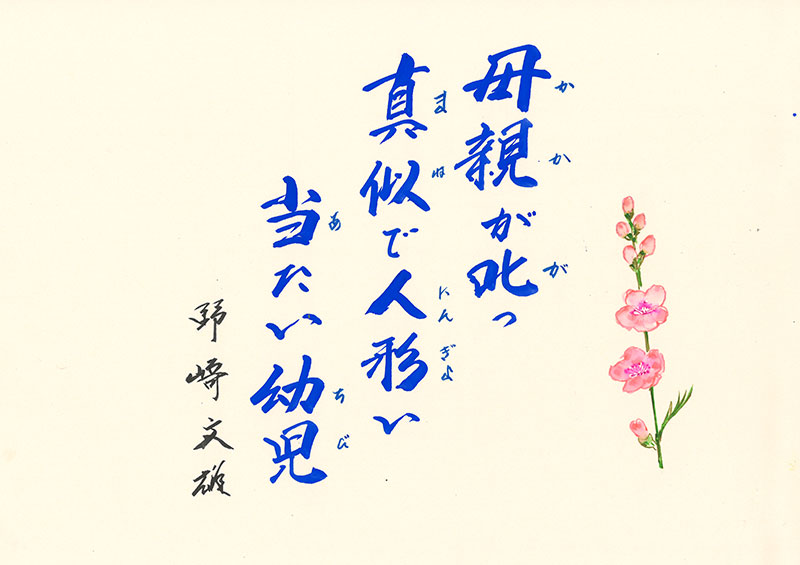 母親が叱っ
真似で人形い
当たい幼児
野崎文雄
かか
が
まね
にんぎよ
あ
ちび